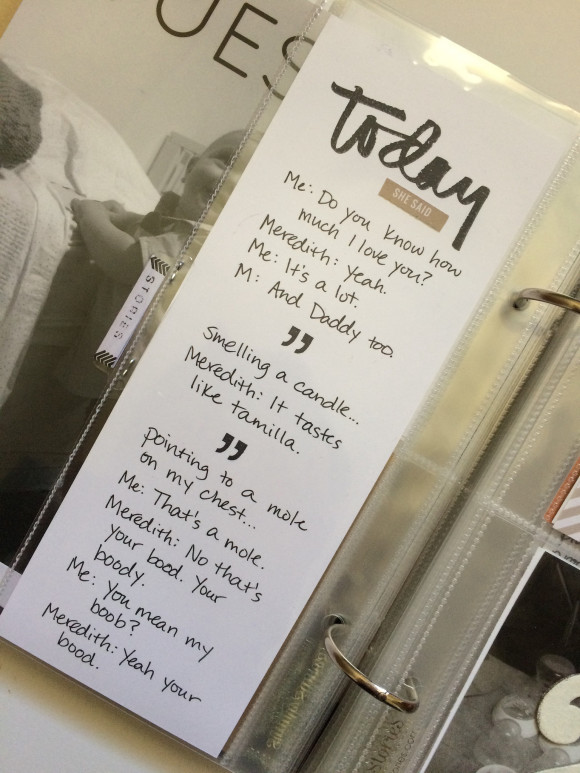 UES
today
SHE SAID
Me: Do you know how
much I love you?
Meredith: Yeah.
Me: It's a lot.
M: And Daddy too.
"
Smelling a candle...
Meredith: It tastes
like tamilla.
"
Pointing to a mole
on my chest...
Me: That's a mole.
Meredith: No that's
your bood. Your
boody.
Me: You mean my
boob?
Meredith: Yeah your
bood.
STORIES